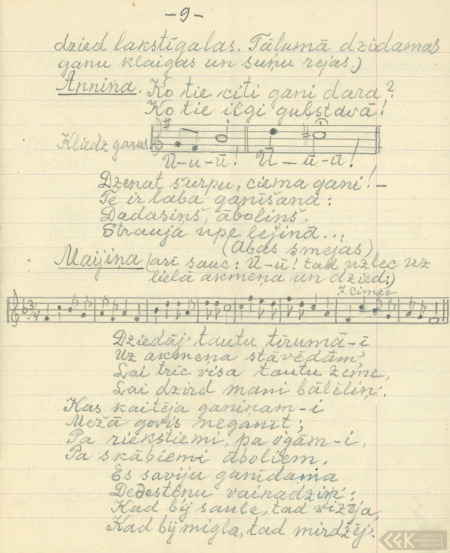 -9-
dzied lakstīgalas. Tālumā dzidamas
ganu klaigas un suņu rejas.)
Anniņa. Ko tie citi gani dara?
Ko tie ilgi gulstavā!
Kliedz garus
Ū-u-ū! Ū-ū-ū!
Dzenat šurpu, ciema gani! -
Te ir laba ganīšana:
Dadzsiņš, āboliņš,
Strauja upe lejiņā...
(Abas smejas)
Maijiņa (arī sauc: Ū-ū! tad uzlec uz
lielā akmeņa un dzied:)
J. Cīmze
Dziedāj' tautu tīrumā-i
Uz akmeņa stāvēdām',
Lai trīc visa tautu zeme,
Lai dzird mani bālēliņ'.
Kas kaitēja ganiņam-i
Mežā govis neganīt;
Pa riekstiemi, pa ogām-i,
Pa skābiemi āboliem.
Es saviju ganīdama
vainadziņ';
Kad bij saule, tad vizēja,
Kad bij migla, tad mirdzēj'.